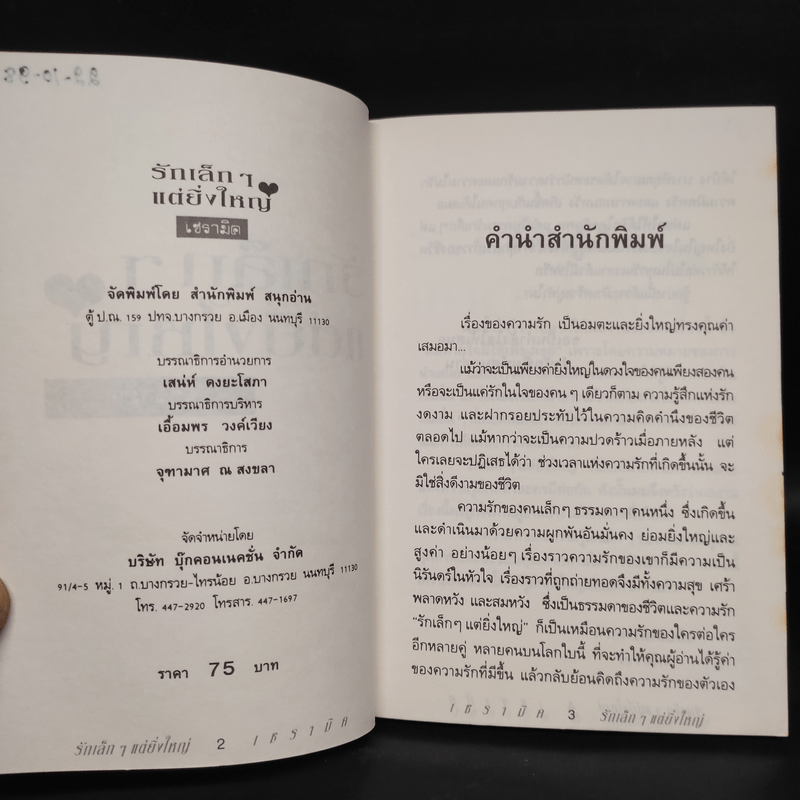 รักเล็ก ๆ
แต่ยิ่งใหญ่
เซรามิค
จัดพิมพ์โดย สำนักพิมพ์ สนุกอ่าน
ตู้ ป.ณ. 159 ปทจ.บางกรวย อ.เมือง นนทบุรี 11130
บรรณาธิการอำนวยการ
เสน่ห์ ดงยะโสภา
บรรณาธิการบริหาร
เอื้อมพร วงค์เวียง
บรรณาธิการ
จุฑามาศ ณ สงขลา
จัดจำหน่ายโดย
บริษัท บุ๊กคอนเนคชั่น จำกัด
91/4-5 หมู่. 1 ถ.บางกรวย-ไทรน้อย อ.บางกรวย นนทบุรี 11130
โทร. 447-2920 โทรสาร. 447-1697
ราคา 75 บาท
รักเล็ก ๆ แต่ยิ่งใหญ่ 2 เซรามิค
คำนำสำนักพิมพ์
เรื่องของความรัก เป็นอมตะและยิ่งใหญ่ทรงคุณค่า
เสมอมา...
แม้ว่าจะเป็นเพียงค่ายิ่งใหญ่ในดวงใจของคนเพียงสองคน
หรือจะเป็นแค่รักในใจของคน ๆ เดียวก็ตาม ความรู้สึกแห่งรัก
งดงาม และฝากรอยประทับไว้ในความคิดคำนึงของชีวิต
ตลอดไป แม้หากว่าจะเป็นความปวดร้าวเมื่อภายหลัง แต่
ใครเลยจะปฏิเสธได้ว่า ช่วงเวลาแห่งความรักที่เกิดขึ้นนั้น จะ
มิใช่สิ่งดีงามของชีวิต
ความรักของคนเล็กๆ ธรรมดาๆ คนหนึ่ง ซึ่งเกิดขึ้น
และดำเนินมาด้วยความผูกพันอันมั่นคง ย่อมยิ่งใหญ่และ
สูงค่า อย่างน้อยๆ เรื่องราวความรักของเขาก็มีความเป็น
นิรันดร์ในหัวใจ เรื่องราวที่ถูกถ่ายทอดจึงมีทั้งความสุข เศร้า
พลาดหวัง และสมหวัง ซึ่งเป็นธรรมดาของชีวิตและความรัก
"รักเล็กๆ แต่ยิ่งใหญ่" ก็เป็นเหมือนความรักของใครต่อใคร
อีกหลายคู่ หลายคนบนโลกใบนี้ ที่จะทำให้คุณผู้อ่านได้รู้ค่า
ของความรักที่มีขึ้น แล้วกลับย้อนคิดถึงความรักของตัวเอง
เซรามิค 3 รักเล็ก ๆ แต่ยิ่งใหญ่